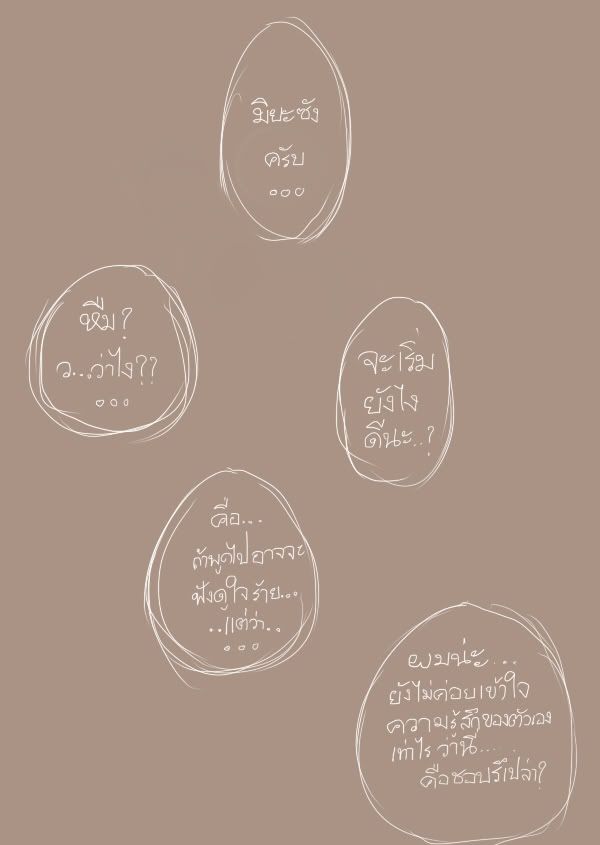 มิยะซัง
ครับ
...
หืม?
ว...ว่าไง??
...
จะเริ่ม
ยังไง
ดีนะ..?
คือ...
ถ้าพูดไปอาจจะ
ฟังดูใจร้าย...
..แต่ว่า..
...
ผมน่ะ...
ยังไม่ค่อยเข้าใจ
ความรู้สึกของตัวเอง
เท่าไร ว่านี่.....
คือชอบรึเปล่า?